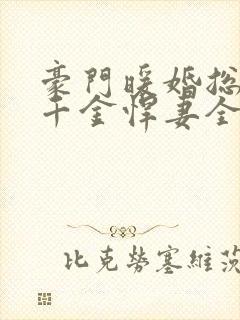 豪門暖婚總
千金悍妻全
比克勞塞維茨